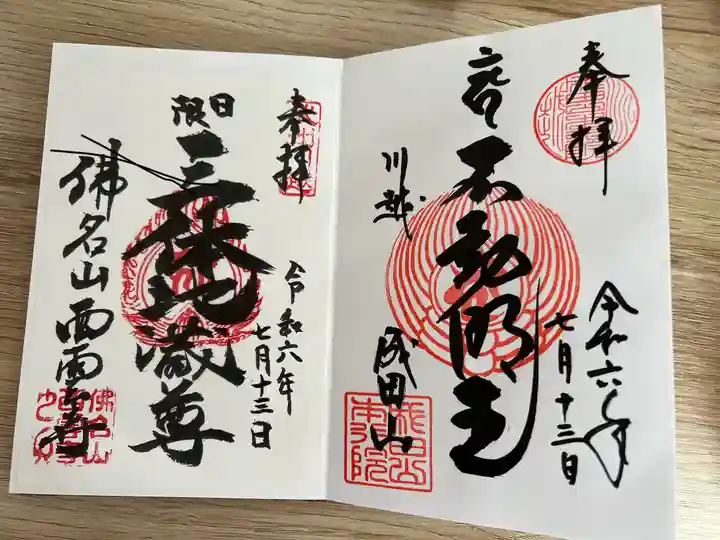 奉拝
不動明王
川越
成田山
令和六年
七月十三日
奉拝
日限
三体地蔵尊
令和六年
七月十三日
佛名山西雲寺
佛名山